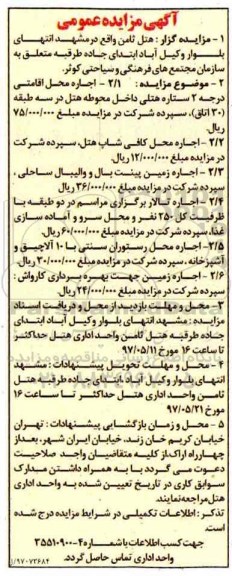 آگهی مزایده عمومی
۱ - مزایده گزار : هتل ثامن واقع در مشهد انتهای
بلـوار وکیل آباد ابتدای جاده طرقبه متعلق به
سازمان مجتمع های فرهنگی و سیاحتی کوثر.
۲ - موضوع مزایده : ۲/۱ - اجاره محل اقامتی
درجه ۲ ستاره هتلی داخل محوطه هتل در سه طبقه
(۳۰ اتاق)، سپرده شرکت در مزایده مبلغ ۷۵/۰۰۰/۰۰۰
ریال.
۲/۲ - اجاره محل کافی شاپ هتل، سپرده شرکت
در مزایده مبلغ ۱۲/۰۰۰/۰۰۰ ریال.
۲/۳ - اجاره زمین پینت بال و والیبال ساحلی ،
سپرده شرکت در مزایده مبلغ ۳۶/۰۰۰/۰۰۰ ریال.
۲/۴ - اجاره تالار برگزاری مراسم در دو طبقه با
ظرفیت کل ۲۵۰ نفر و محل سرو و آماده سازی
غذا، سپرده شرکت در مزایده مبلغ ۶۰/۰۰۰/۰۰۰ ریال.
۲/۵ - اجاره محل رستوران سنتی با ۱۰ آلاچیق و
آشپزخانه . سپرده شرکت در مزایده مبلغ ۳۰/۰۰۰/۰۰۰ ریال.
۲/۶ - اجاره زمین جهت بهره برداری کارواش :
سپرده شرکت در مزایده مبلغ ۲۴/۰۰۰/۰۰۰ ریال.
۳ - محل و مهلت بازدید از محل و دریافت اسناد
مزایده : مشهد انتهای بلوار وکیل آباد ابتدای
جاده طرقبه هتل ثامن واحد اداری هتل حداکثر
تا ساعت ۱۶ مورخ ۹۷/۰۵/۱۱
۴ - محل و مهلت تحویل پیشنهادات : مشهد
انتهای بلوار وکیل آباد ابتدای جاده طرقبه هتل
ثامن واحد اداری هتل حداکثر تا ساعت ۱۶
مورخ ۹۷/۰۵/۲۱
۵ - محل و زمان بازگشایی پیشنهادات : تهران
خیابان کریم خان زند، خیابان ایران شهر، بعد از
چهارراه اراک از کلیه متقاضیان واجد صلاحیت
دعوت می گردد با به همراه داشتن مدارک
سوابق کاری در تاریخ تعیین شده به واحد اداری
هتل مراجعه نمایند.
تذکر : اطلاعات تکمیلی در شرایط مزایده درج شده
است.
جهت کسب اطلاعات با شماره ۴-۳۵۵۱۰۹۰۰
واحد اداری تماس حاصل گردد.
/۹۷۰۷۳۶۸۴